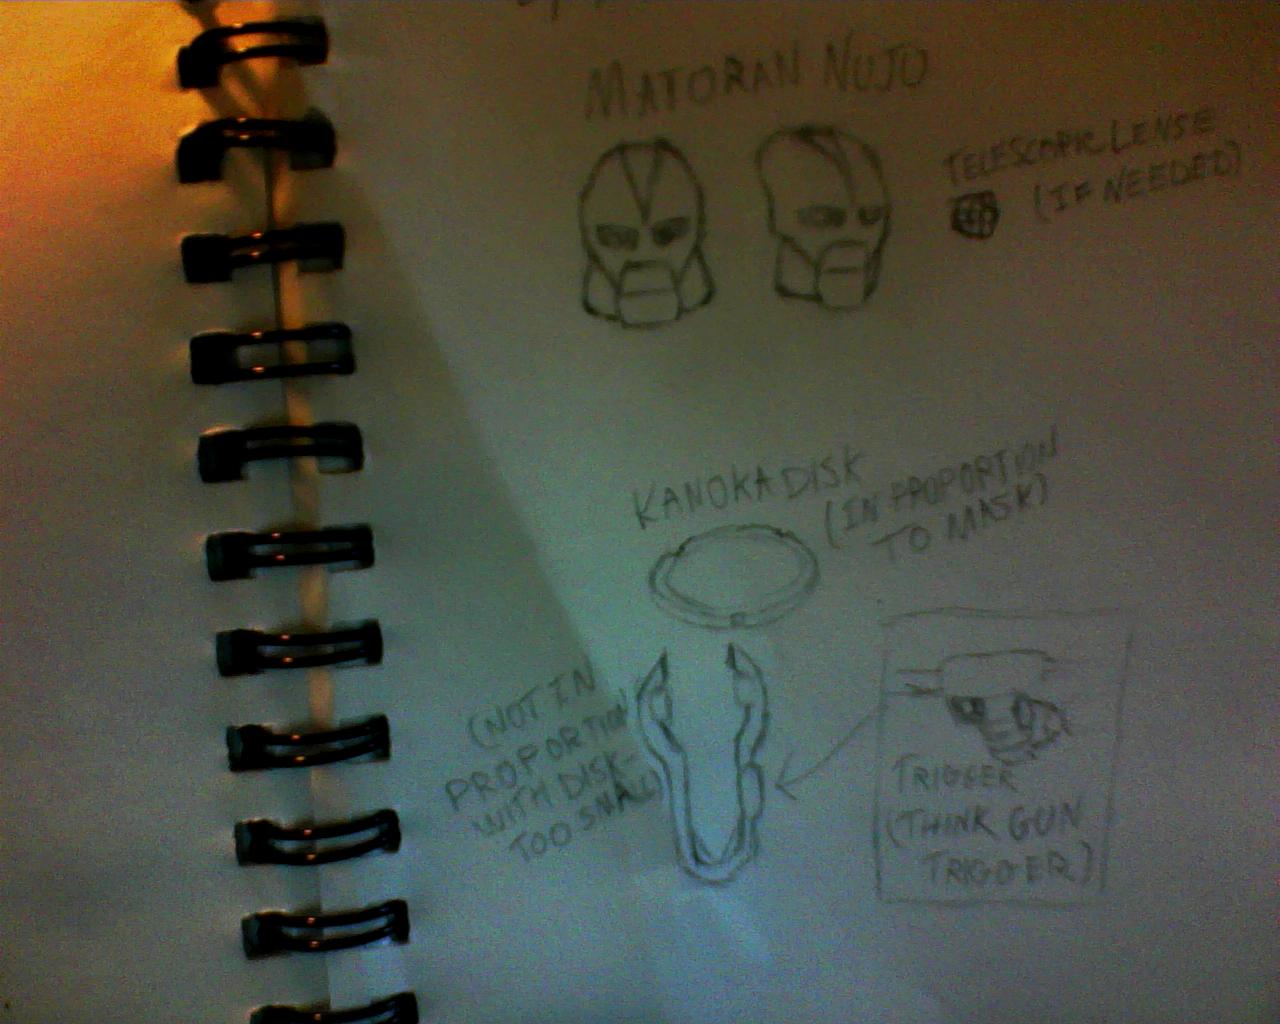 MATORAN NUJO
TELESCOPIC LENSE
(IF NEEDED)
KANOKA DISK
(IN PROPORTION
TO MASK)
(NOT IN
PROPORTION
WITH DISK-
TOO SMALL)
TRIGGER
(THINK GUN
TRIGGER)